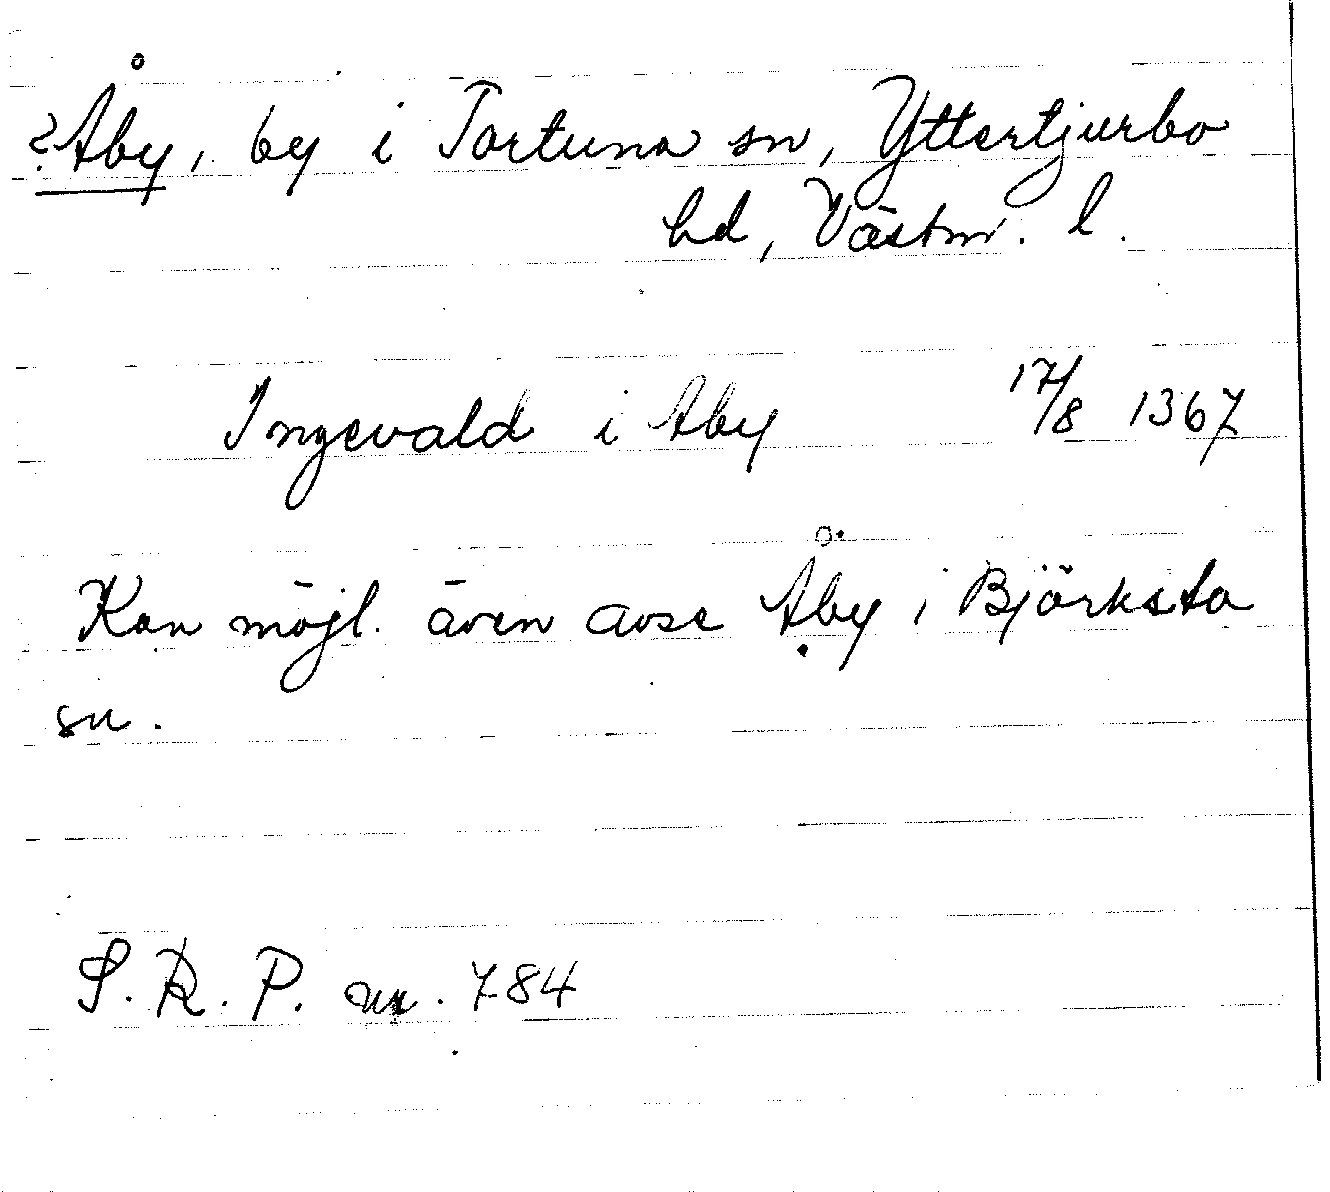 ? Åby, by i Tortuna sn, Yttertjurbo
hd, Västm. l.
Ingevald i Aby 17/8 1367
Kan möjl. även avse Åby i Björksta
sn.
S. R. P. nr. 784